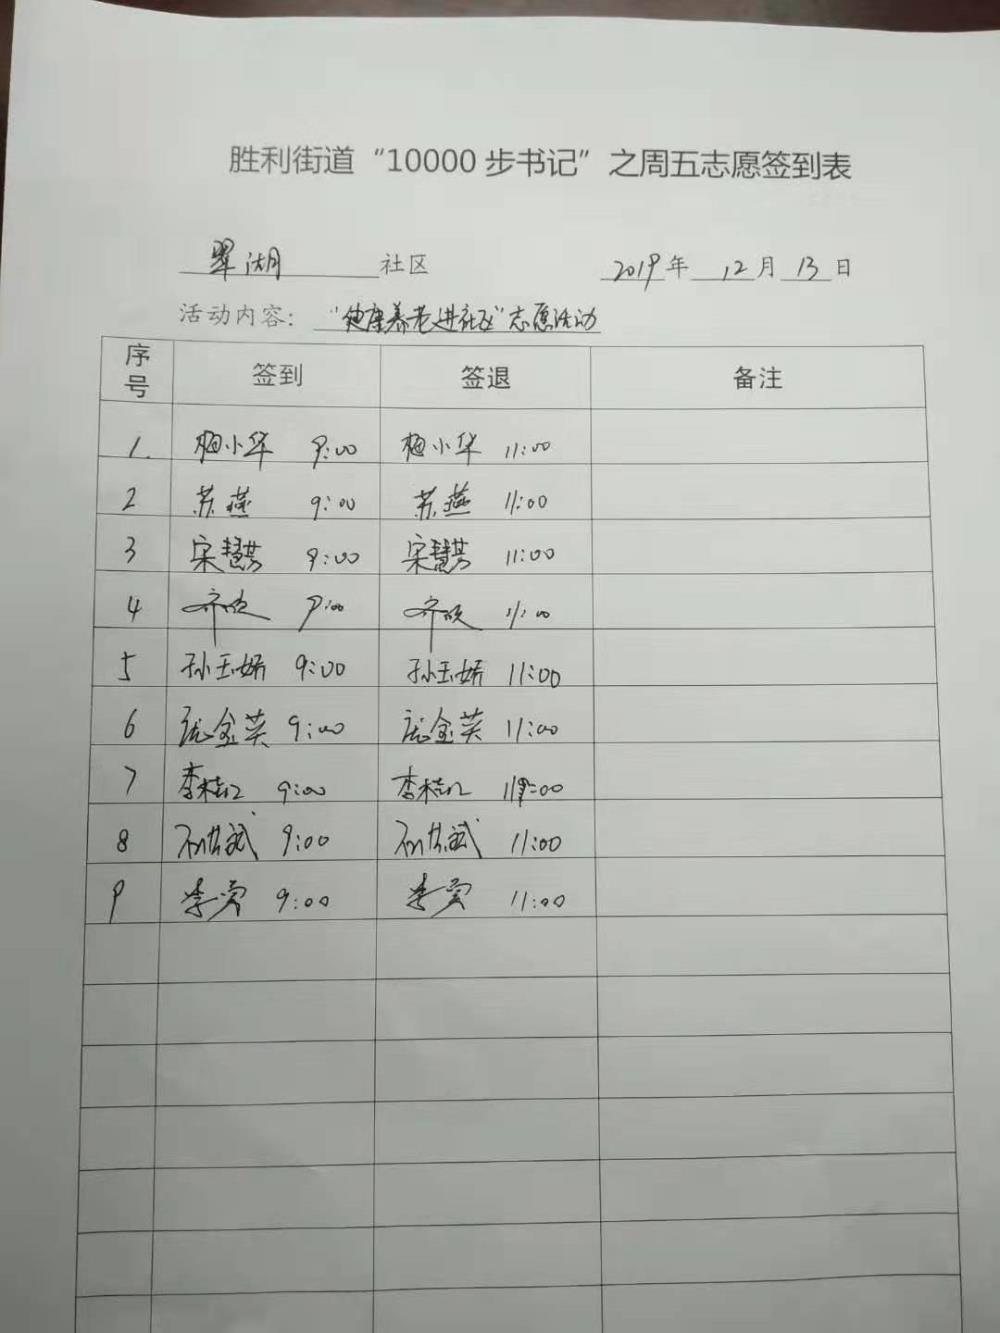 胜利街道“10000步书记”之周五志愿签到表
翠湖 社区 2019年 12月 13日
活动内容：“健康养老进社区”志愿活动
序号 签到 签退 备注
1. 梅小华 9:00 梅小华 11:00
2 苏燕 9:00 苏燕 11:00
3 宋慧芳 9:00 宋慧芳 11:00
4 齐欣 9:00 齐欣 11:00
5 孙玉娇 9:00 孙玉娇 11:00
6 金英 9:00 金英 11:00
7 李桂 9:00 李桂 11:00
8 斌 9:00 斌 11:00
9 李 9:00 李 11:00